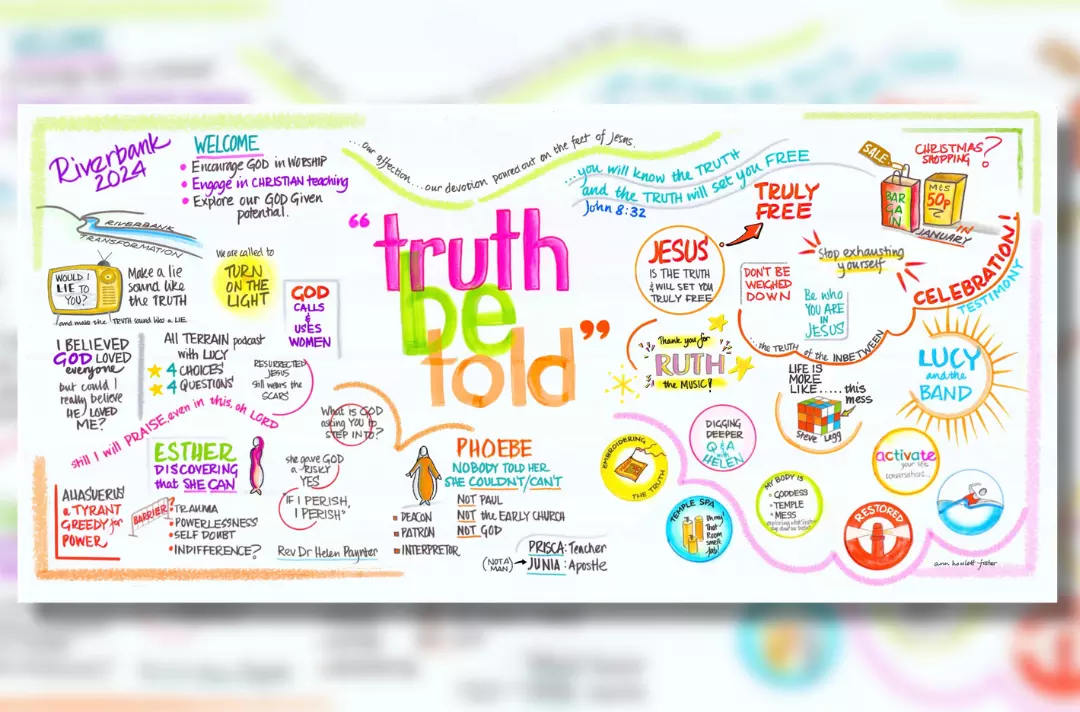 Riverbank
2024
WELCOME
• Encourage GOD in WORSHIP
• Engage in CHRISTIAN teaching
• Explore our GOD Given
potential.
RIVERBANK
TRANSFORMATION
WOULD I
LIE TO
YOU?
Make a lie
sound like
the TRUTH
and make the TRUTH sound like a LIE
We are called to
TURN
ON THE
LIGHT
GOD
CALLS
&
USES
WOMEN
I BELIEVED
GOD LOVED
everyone
but could I
really believe
HE LOVED
ME?
All TERRAIN podcast
with LUCY
4 CHOICES'
4 QUESTIONS'
RESURRECTED
JESUS
still wears the
SCARS
still I will PRAISE, even in this, oh LORD
What is GOD
asking YOU to
STEP INTO?
ESTHER
DISCOVERING
that SHE CAN
she gave GOD
a RISKY
YES
"IF I PERISH,
I PERISH"
AHASUERUS'
a TYRANT
GREEDY for
POWER
BARRIER?
• TRAUMA
• POWERLESSNESS'
• SELF DOUBT
• INDIFFERENCE?
Rev Dr Helen Paynter
...our affection...our devotion poured out on the feet of Jesus.
"truth
be
told"
PHOEBE
NOBODY TOLD HER
SHE COULDN'T/CAN'T
NOT PAUL
NOT the EARLY CHURCH
NOT GOD
DEACON
PATRON
INTERPRETOR
PRISCA: Teacher
(NOT A MAN) → JUNIA: Apostle
...you will know the TRUTH
and the TRUTH will set you FREE
John 8:32
TRULY
FREE
JESUS'
IS THE TRUTH
& WILL SET YOU
TRULY FREE
DON'T BE
WEIGHED
DOWN
Stop exhausting
yourself
Be who
YOU ARE
IN
JESUS!
SALE
BAR
GA
IN
M&S
50p
IN
JANUARY
CHRISTMAS
SHOPPING?
CELEBRATION!
TESTIMONY
...the TRUTH of the INBETWEEN
Thank you for
RUTH
the MUSIC!
LIFE IS
MORE
LIKE.....this
mess
Steve Legg
LUCY
and the
BAND
EMBROIDERING
THE TRUTH
DIGGING
DEEPER
Q & A
with
HELEN
TEMPLE SPA
That
Room
smelt
fab!
MY BODY IS
• GODDESS
• TEMPLE
• MESS
activate
your life
conversations...
RESTORED
ann howlett-foster